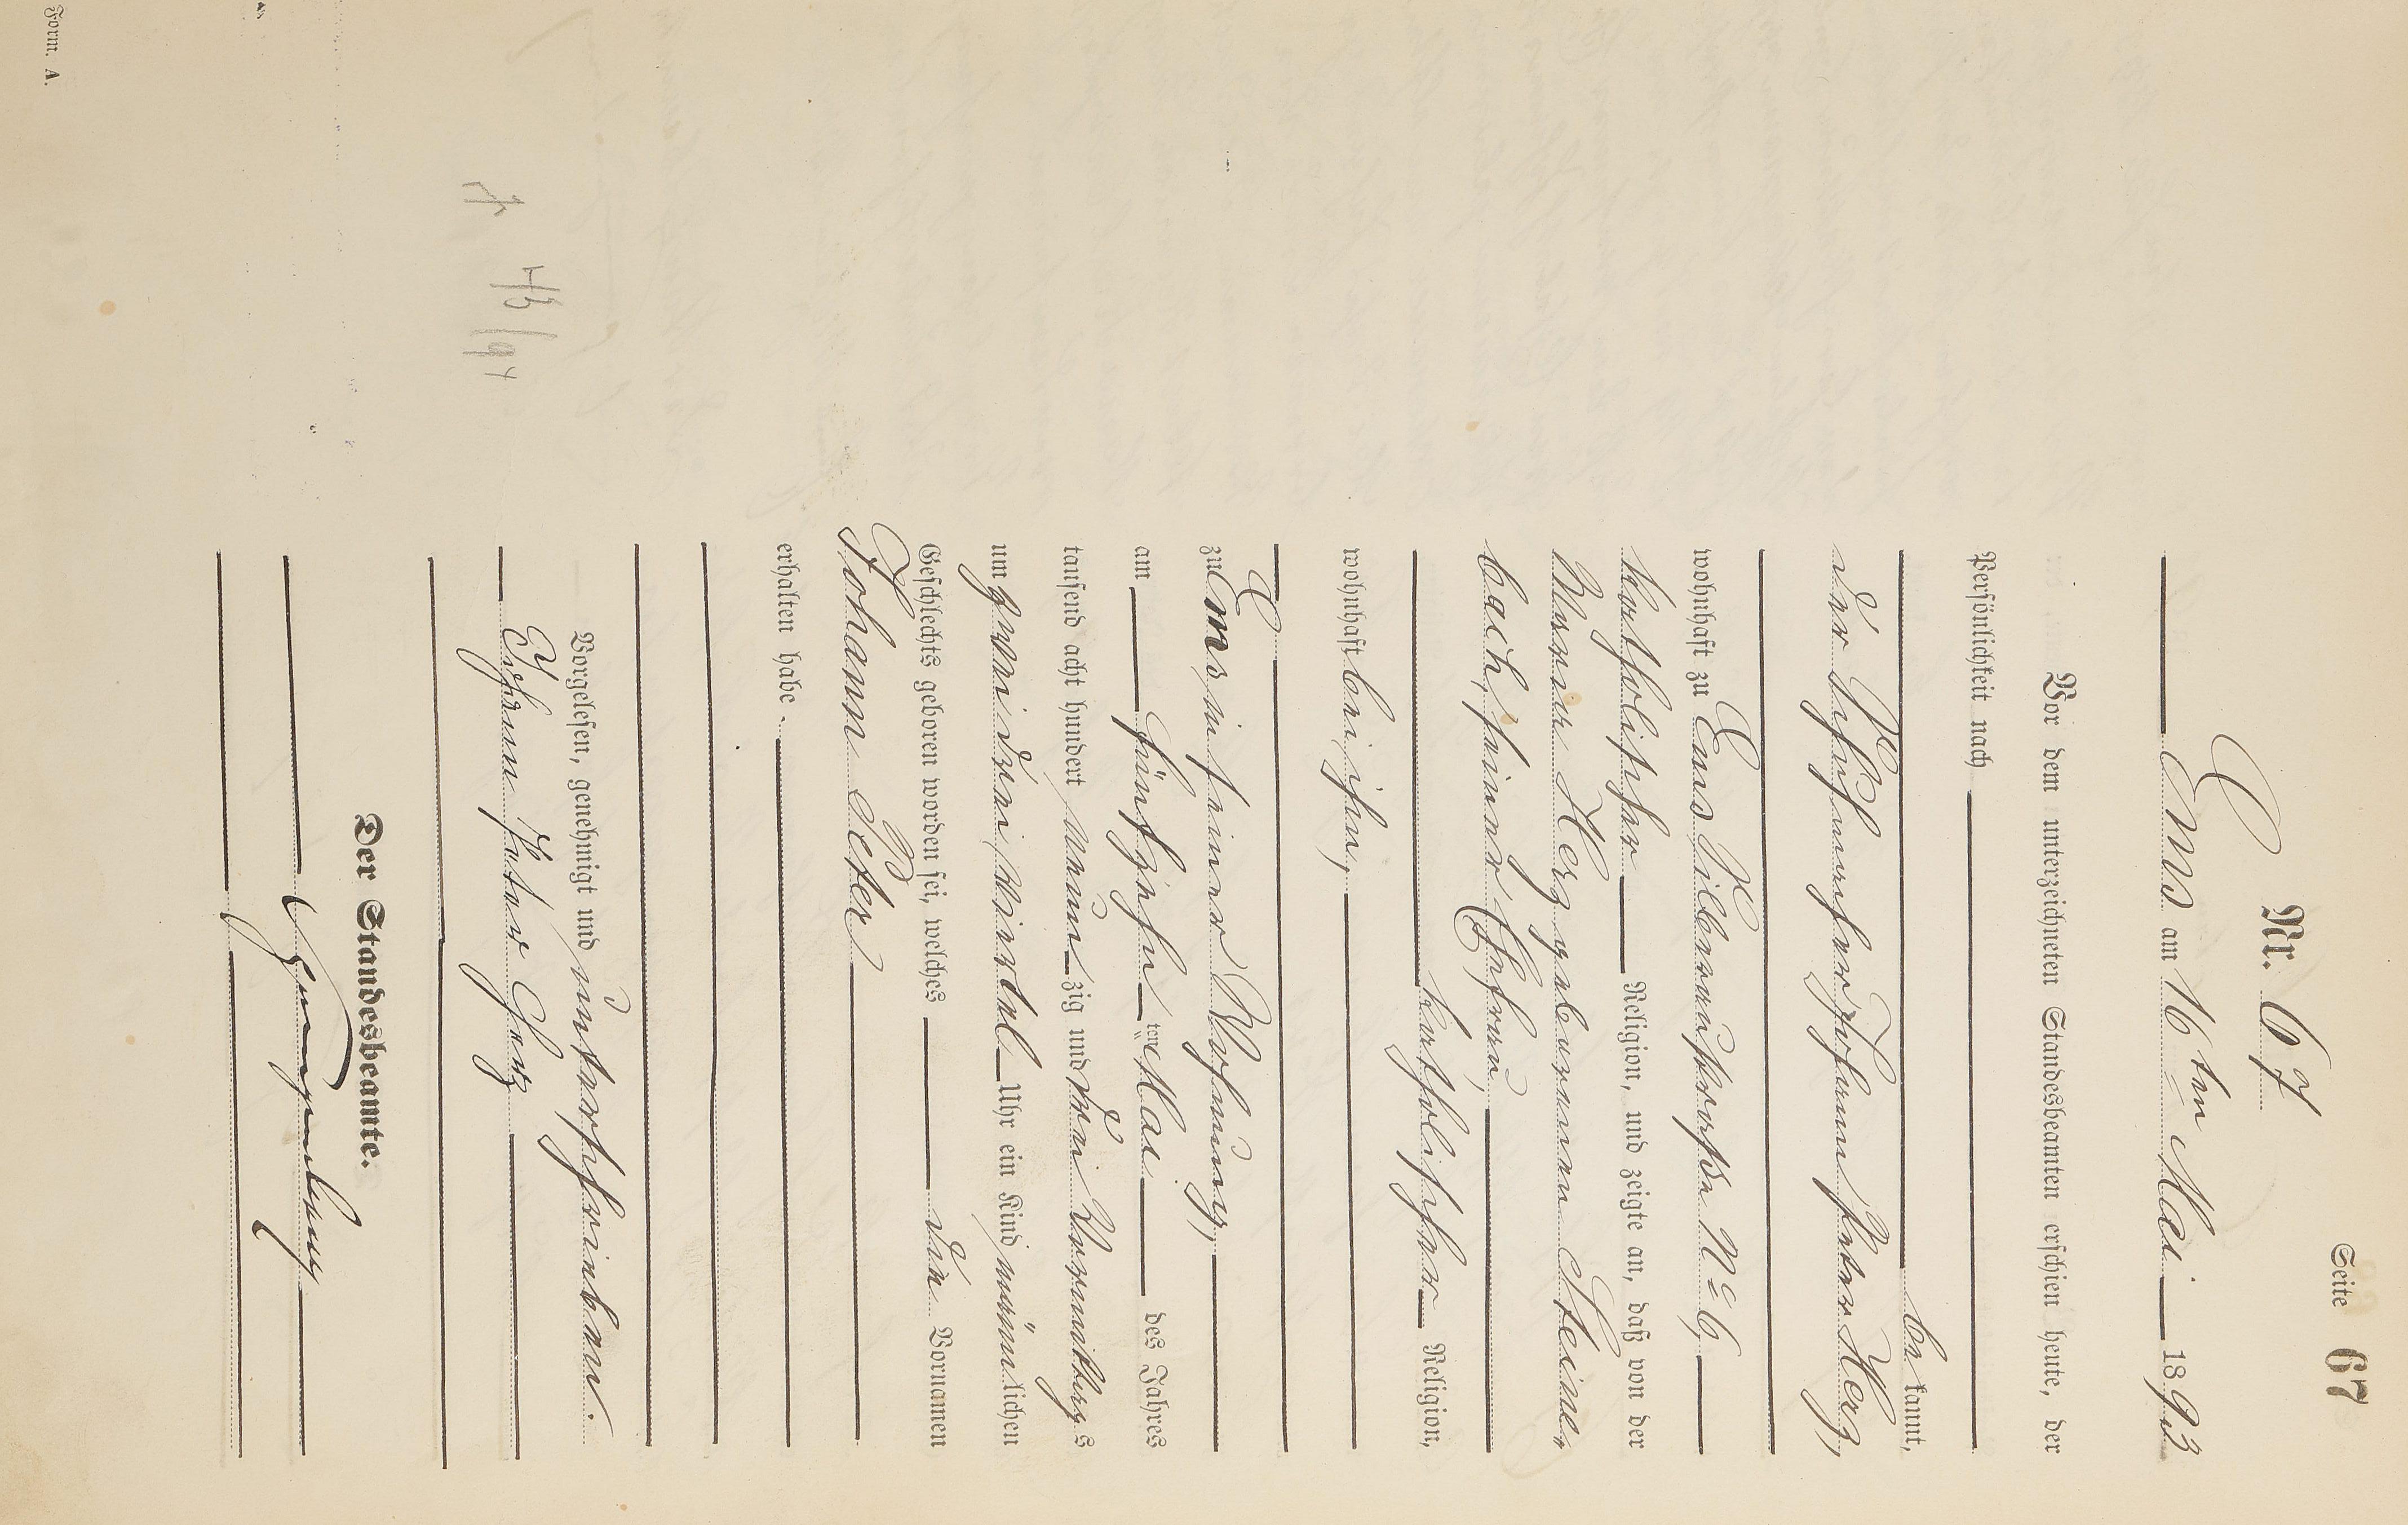 Seite 67
Nr. 67
Ems am 16ten Mai 1893
Vor dem unterzeichneten Standesbeamten erschien heute, der
Persönlichkeit nach
be kannt,
der Johann Peter Herz,
wohnhaft zu Ems Silberaustraße No 6,
katholischer Religion, und zeigte an, daß von der
Maria Herz geborenen Steime-
bach, seiner Ehefrau,
katholischer Religion,
wohnhaft bei ihm,
zu Ems in seiner Wohnung,
am fünfzehnten Mai des Jahres
tausend acht hundert neunzig und drei Vormittags
um zwei drei viertel Uhr ein Kind männlichen
Geschlechts geboren worden sei, welches die Vornamen
Johann Peter
erhalten habe.
Vorgelesen, genehmigt und unterschrieben.
Johann Peter Herz
Der Standesbeamte.
4/3/94
Form. A.